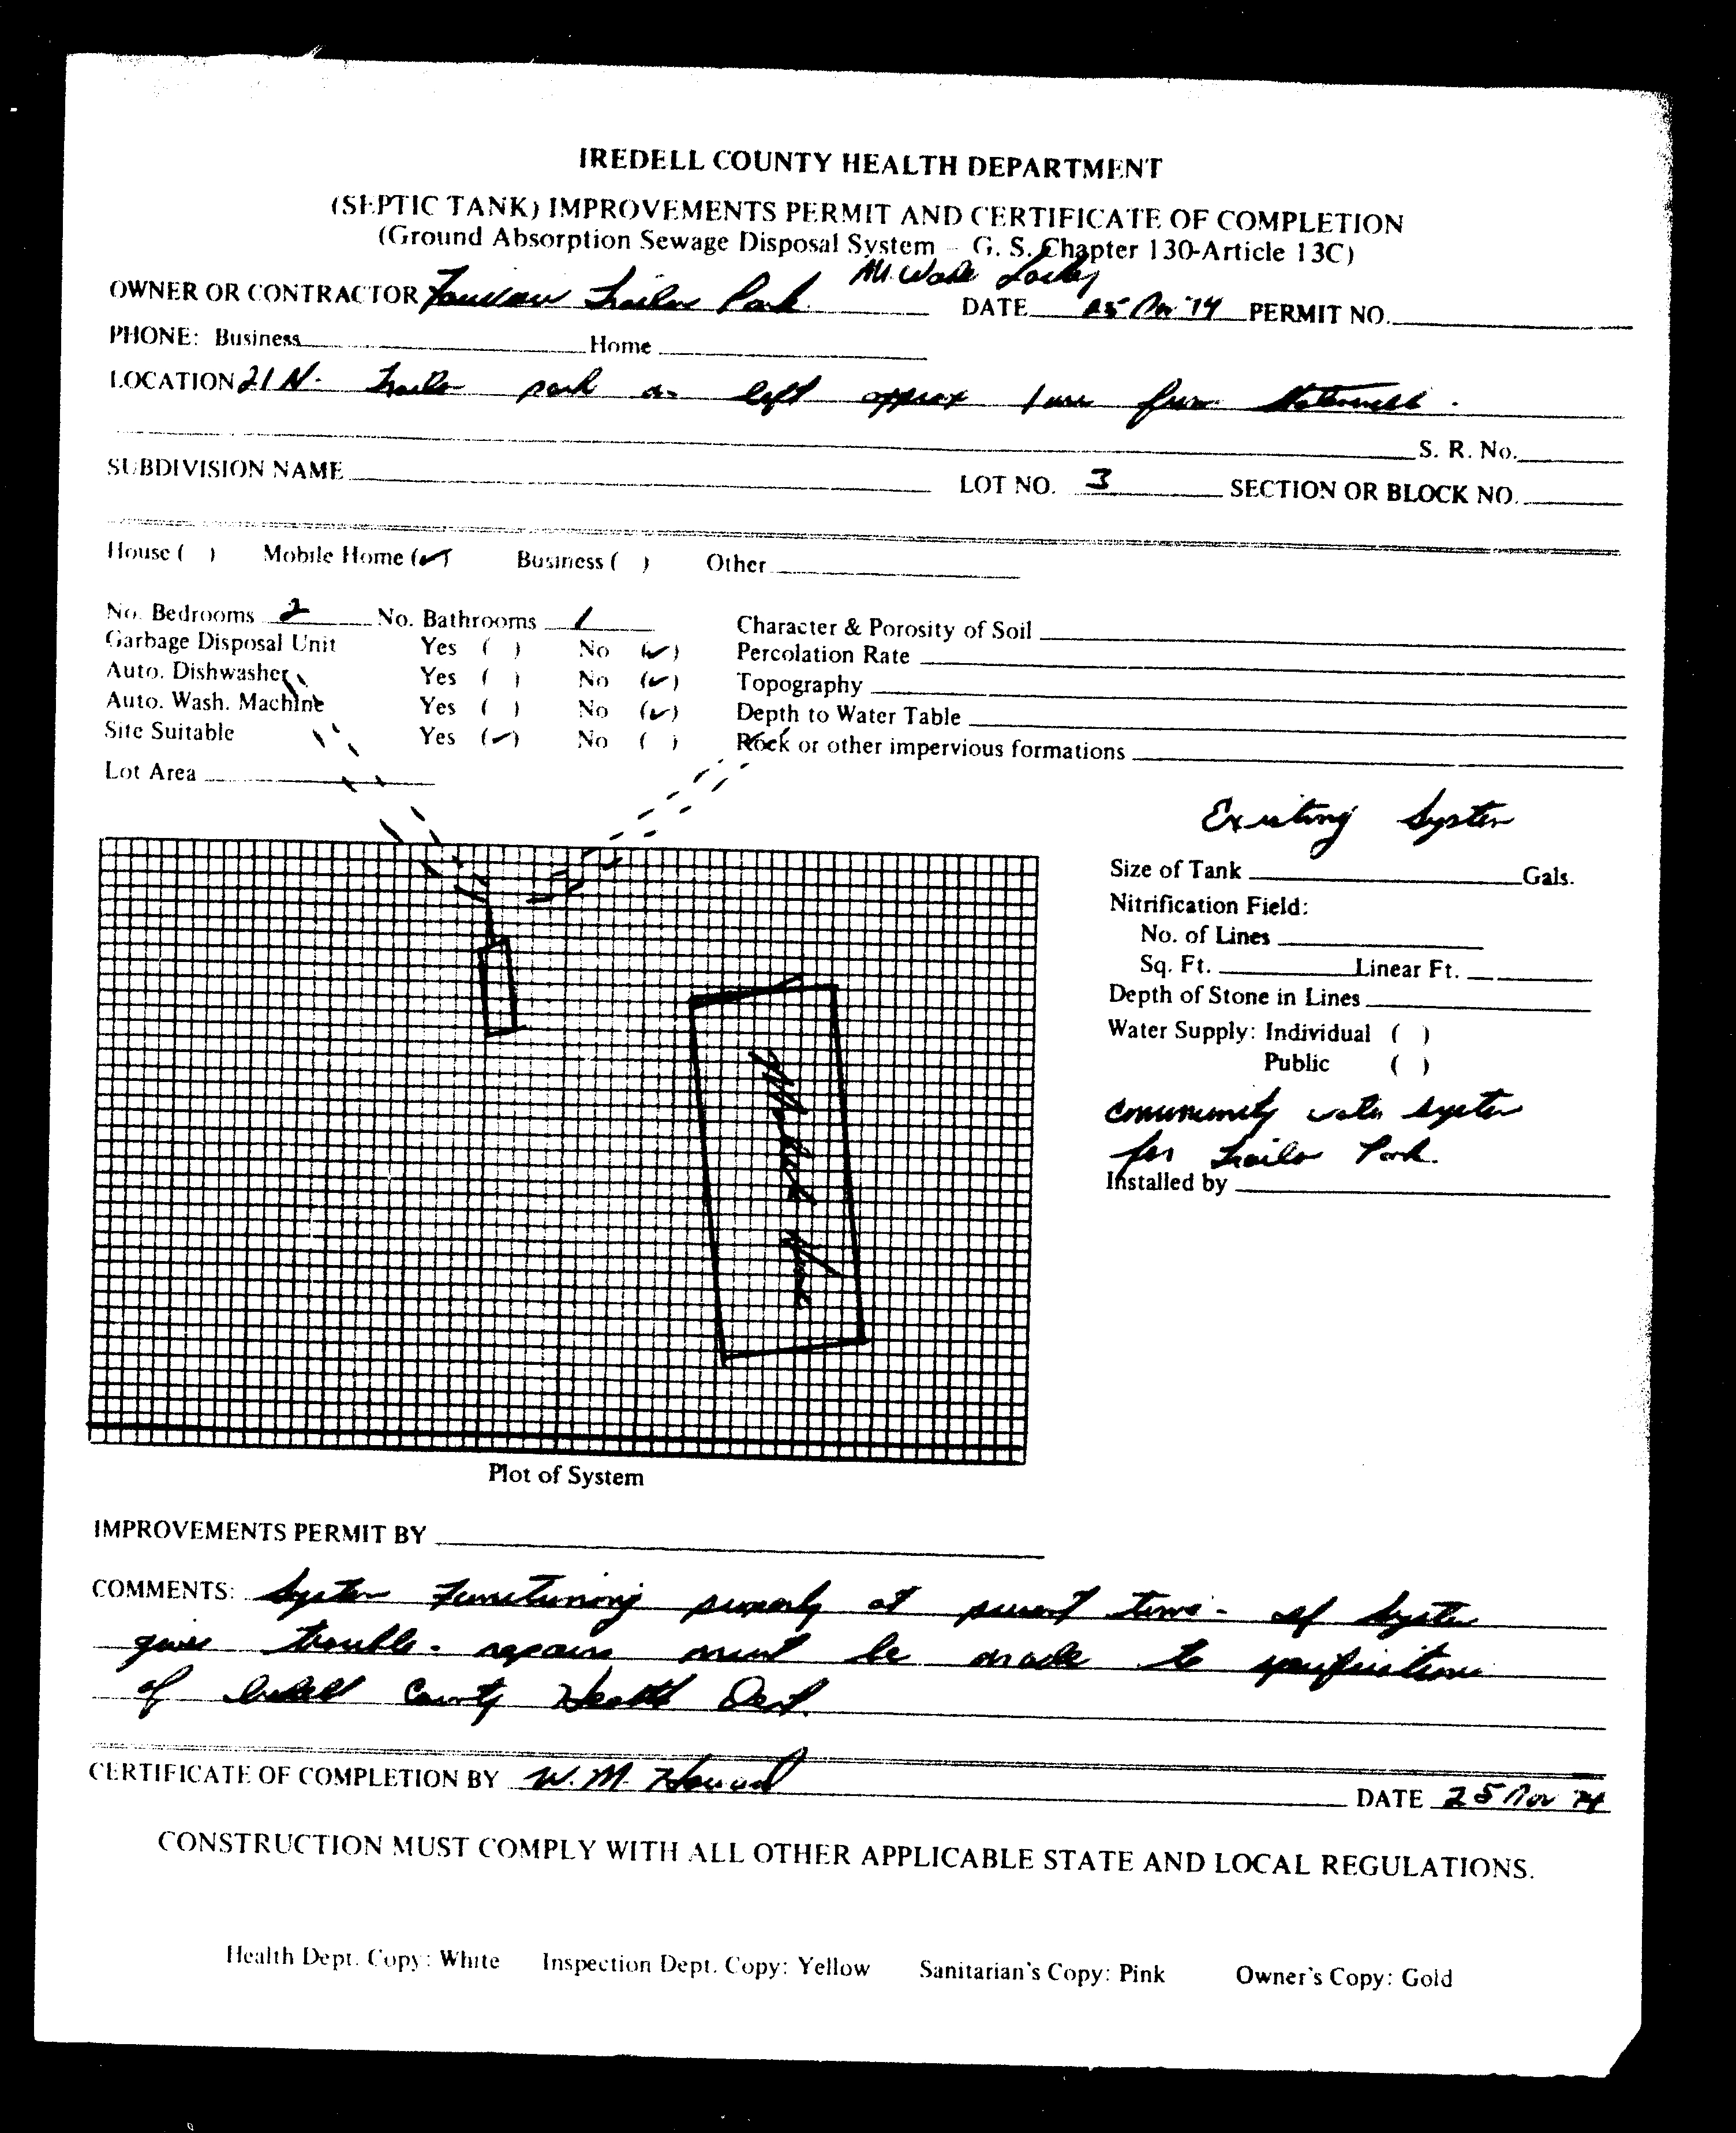 IREDELL COUNTY HEALTH DEPARTMENT
(SEPTIC TANK) IMPROVEMENTS PERMIT AND CERTIFICATE OF COMPLETION
(Ground Absorption Sewage Disposal System – G. S. Chapter 130-Article 13C)
OWNER OR CONTRACTOR Trailer Park DATE 25 Nov 74 PERMIT NO.
PHONE: Business Home
LOCATION 21 N. Trailer park on left approx 1 from
S. R. No.
SUBDIVISION NAME LOT NO. 3 SECTION OR BLOCK NO.
House ( ) Mobile Home (✓) Business ( ) Other
No. Bedrooms 2 No. Bathrooms 1 Character & Porosity of Soil
Garbage Disposal Unit Yes ( ) No (✓) Percolation Rate
Auto. Dishwasher Yes ( ) No (✓) Topography
Auto. Wash. Machine Yes ( ) No (✓) Depth to Water Table
Site Suitable Yes (✓) No ( ) Rock or other impervious formations
Lot Area
Existing System
Size of Tank Gals.
Nitrification Field:
No. of Lines
Sq. Ft. Linear Ft.
Depth of Stone in Lines
Water Supply: Individual ( )
Public ( )
Community water system
for Trailer Park.
Installed by
Mobile Home
Plot of System
IMPROVEMENTS PERMIT BY
COMMENTS: System functioning properly at present time - if system
gives trouble - repairs must be made to specifications
of Iredell County Health Dept.
CERTIFICATE OF COMPLETION BY W. M. Howard DATE 25 Nov 74
CONSTRUCTION MUST COMPLY WITH ALL OTHER APPLICABLE STATE AND LOCAL REGULATIONS.
Health Dept. Copy: White Inspection Dept. Copy: Yellow Sanitarian's Copy: Pink Owner's Copy: Gold